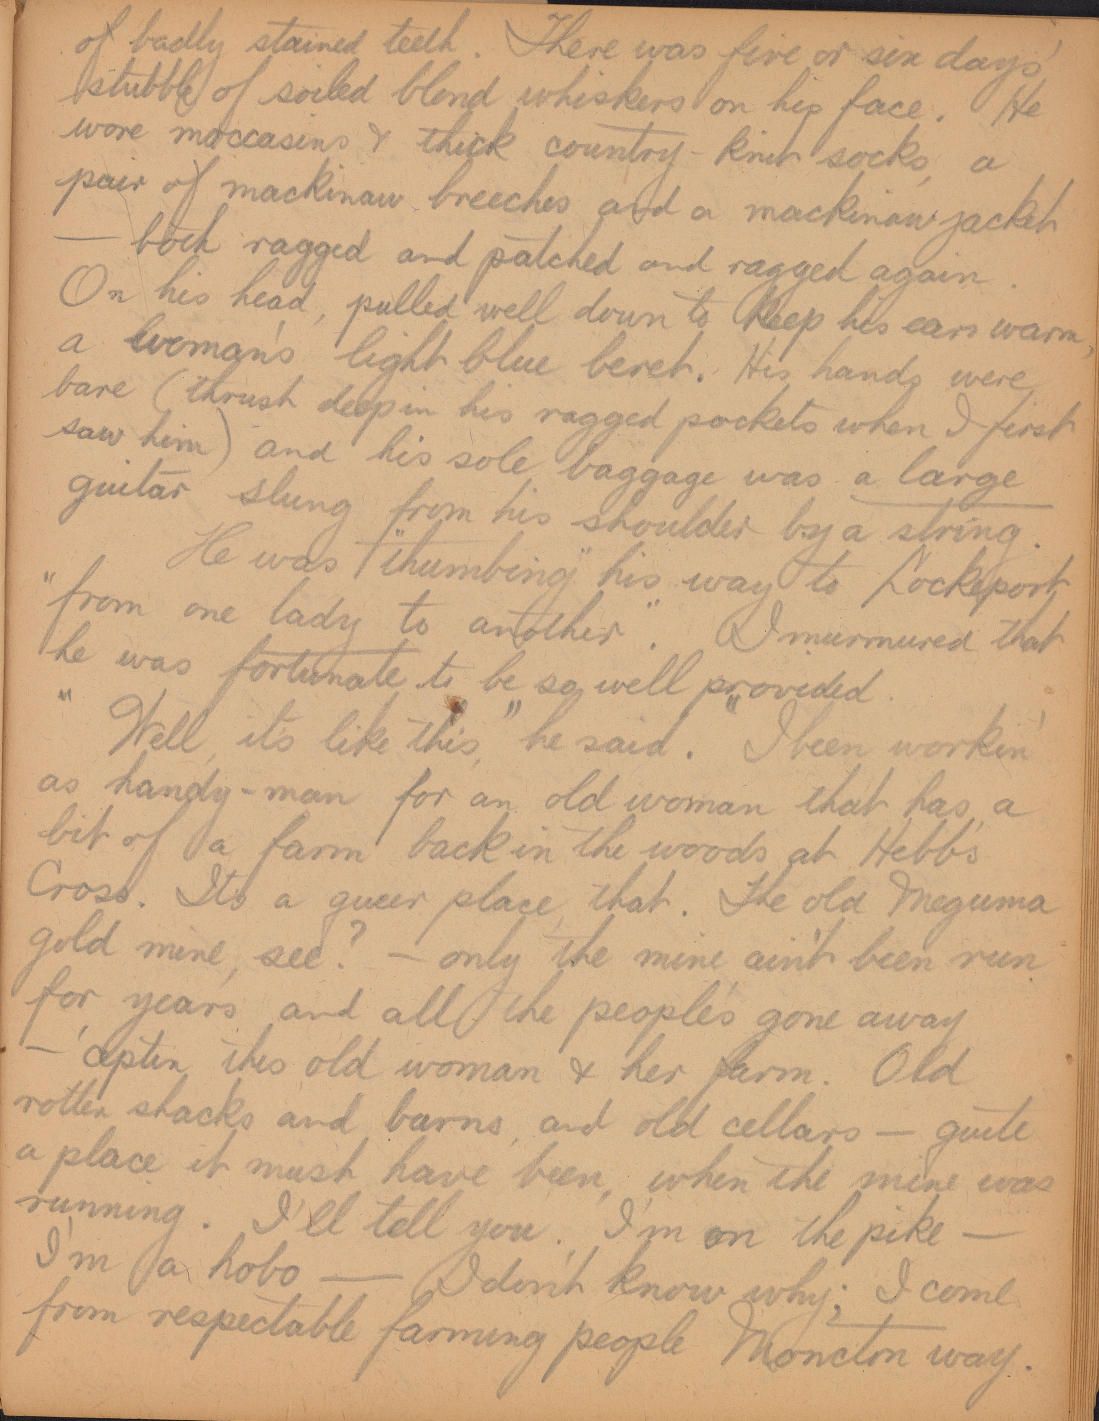 of badly stained teeth. There was five or six days'
stubble of soiled blond whiskers on his face. He
wore moccasins & thick country-knit socks, a
pair of mackinaw breeches and a mackinaw jacket
— both ragged and patched and ragged again.
On his head, pulled well down to keep his ears warm,
a woman's light blue beret. His hands were
bare (thrust deep in his ragged pockets when I first
saw him) and his sole baggage was a large
guitar slung from his shoulder by a string.
He was "thumbing" his way to Lockeport
"from one lady to another". I murmured that
he was fortunate to be so well provided.
"Well, it's like this," he said. "I been workin'
as handy-man for an old woman that has a
bit of a farm back in the woods at Hebb's
Cross. It's a queer place, that. The old Meguma
gold mine, see? — only the mine ain't been run
for years and all the people's gone away
— 'ceptin this old woman & her farm. Old
rotten shacks and barns, and old cellars — quite
a place it must have been, when the mine was
running. I'll tell you. I'm on the pike —
I'm a hobo — I don't know why; I come
from respectable farming people Moncton way.